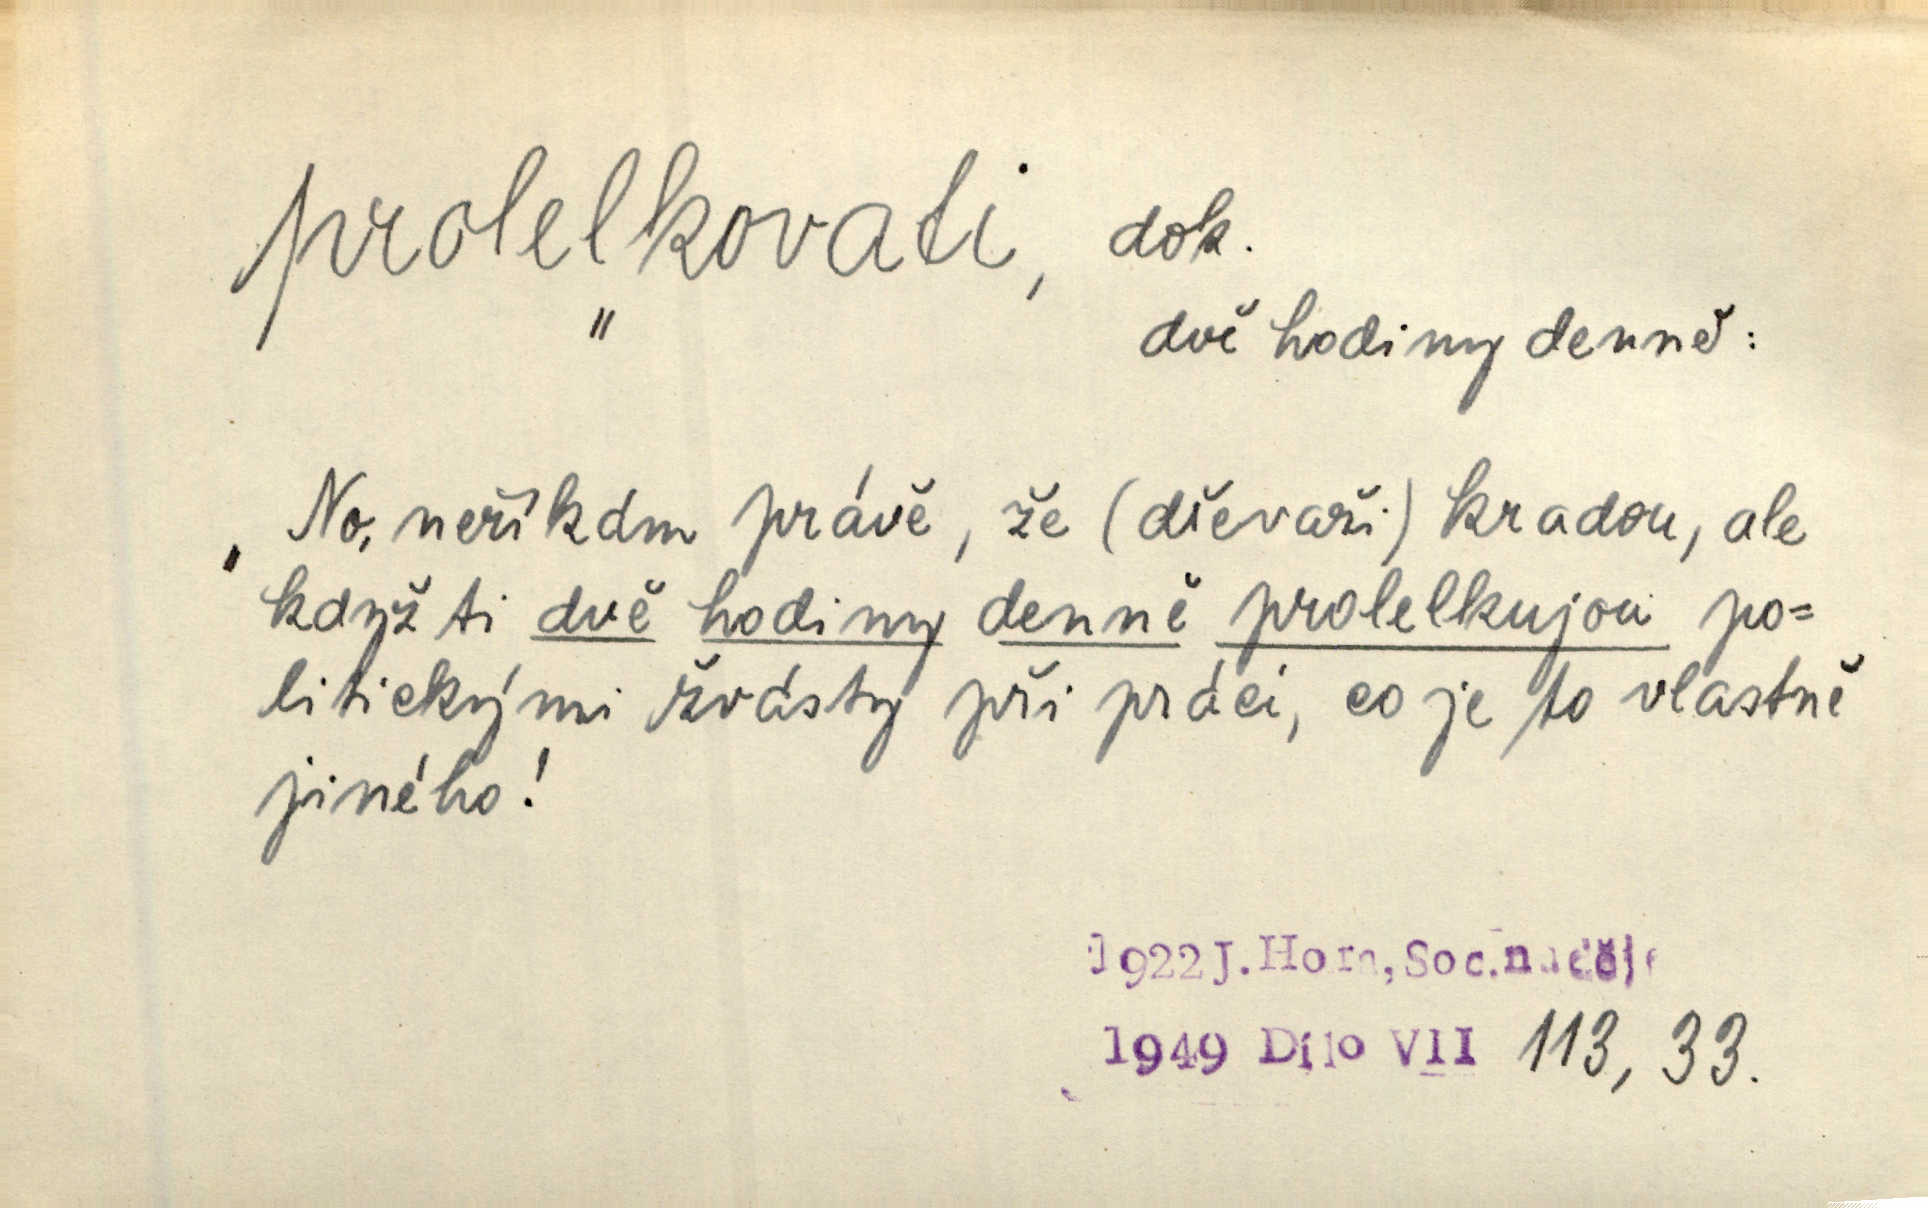 prolelkovati, dok.
"
dvě hodiny denně:
„ No, neříkám právě, že (dřevaři) kradou, ale
když ti dvě hodiny denně prolelkujou po=
litickými žvásty při práci, co je to vlastně
jiného!
1922 J. Hora, Soc. naděje
1949 Dílo VII 113, 33.